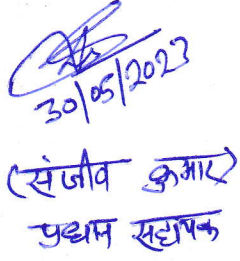 30/05/2023
(संजीव कुमार)
प्रधान सहायक